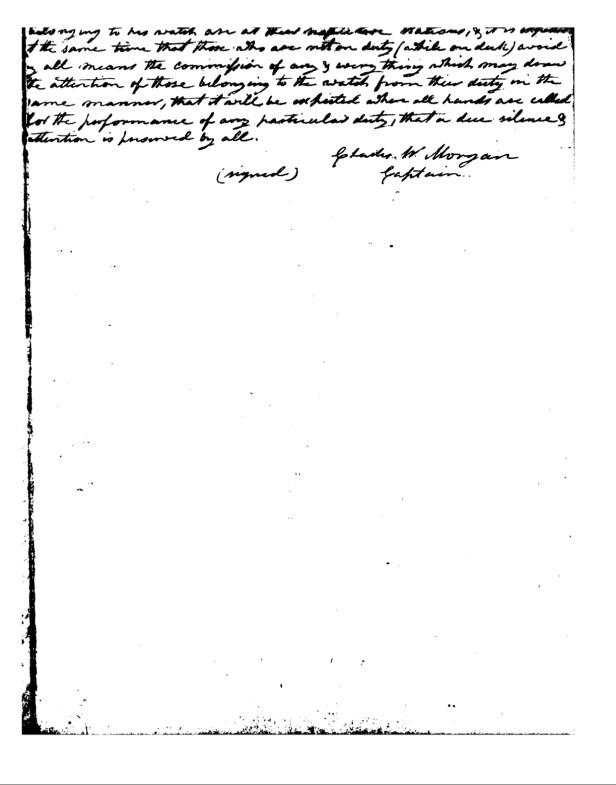 belonging to his watch are at their respective stations, & it is expected
at the same time that those who are not on duty (while on deck) avoid
by all means the commission of any & every thing which may draw
the attention of those belonging to the watch from their duty in the
same manner, that it will be expected when all hands are called
for the performance of any particular duty, that a due silence &
attention is preserved by all.
Charles. W. Morgan
(signed) Captain..